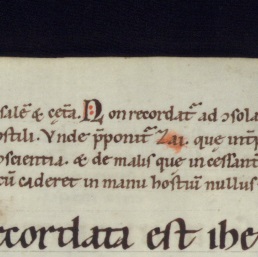 salē & cęta. Non recordat᷑ ad ↄsola
ostili. Vnde p̄ponit᷑ Zai. que int̄p
oscientia. & de malis que in cessant
cū caderet in manu hostiū nullus
ecordata est ihe